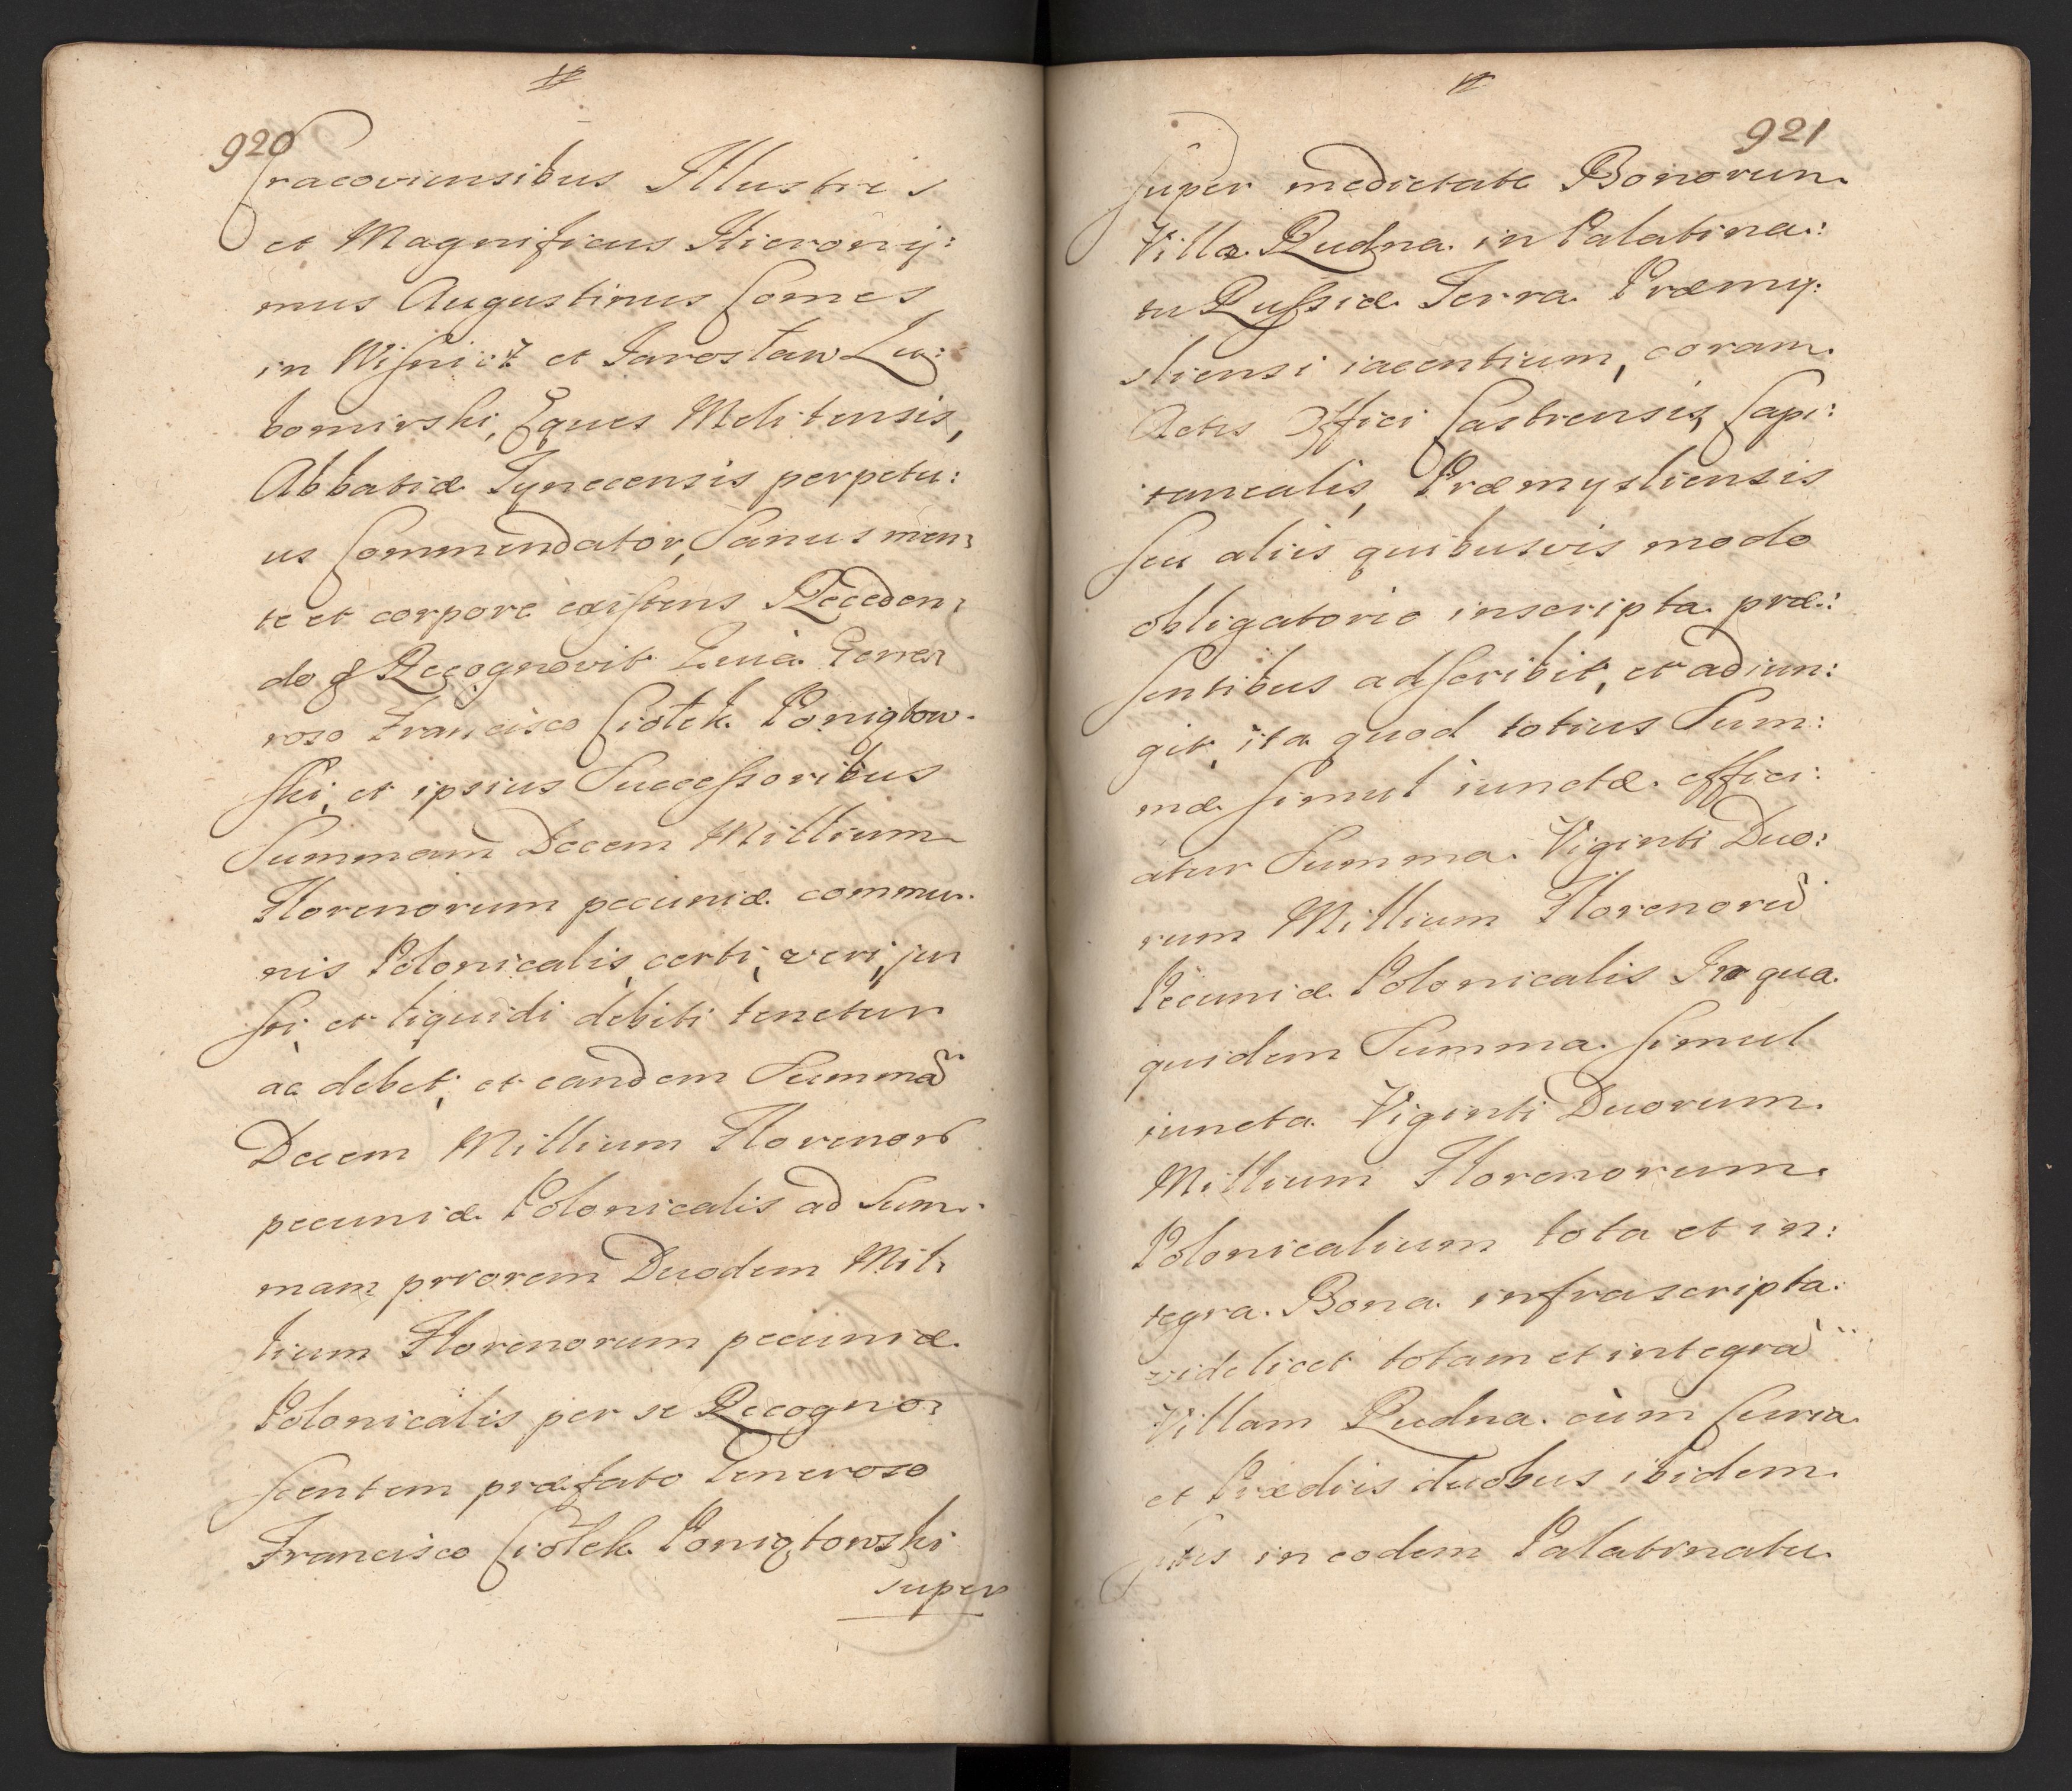 920
Cracoviensibus Illustris
et Magnificus Hierony:
mus Augustinus Comes
in Wiſnicz et Jarosław Lu:
bomirski, Eques Melitensis,
Abbatiæ Tynecensis perpetu:
us Commendator, Sanus men:
te et corpore exiſtens Receden:
do & Recognovit Quia Gene:
roso Francisco Ciołek Poniątow:
ſki, et ipsius Succeſsoribus
Summam Decem Millium
Florenorum pecuniæ commu:
nis Polonicalis, certi, veri, ju
ſti et liquidi debiti tenetur
ac debet, et eandem Summã
Decem Millium Florenor
pecuniæ Polonicalis ad Sum:
mam priorem Duodem Mil:
lium Florenorum pecuniæ
Polonicalis per se Recogno:
ſcentem præfato Generoso
Francisco Ciołek Poniątowski
super
921
ſuper medietate Bonorum
Villa Rudna in Palatina:
tu Ruſsiæ Terra Præmy:
sliensi iacentium, coram
Actis Offici Castrensis, Capi:
tanealis, Præmysliensis
ſeu aliis quibusvis modo
obligatorio inscripta præ:
ſentibus adſcribit, et adiun:
git, ita quod totius Sum:
mæ ſimul iunctæ effici:
atur Summa Viginti Duo:
rum Millium Florenorũ
Pecuniæ Polonicalis In qua
quidem Summa ſimul
iuncta Viginti Duorum
Millium Florenorum
Polonicalium tota et in:
tegra Bona infrascripta
videlicet totam et integrã
Villam Rudna cùm Curia
et Prædiis duobus ibidem
ſitis in eodem Palatinatu